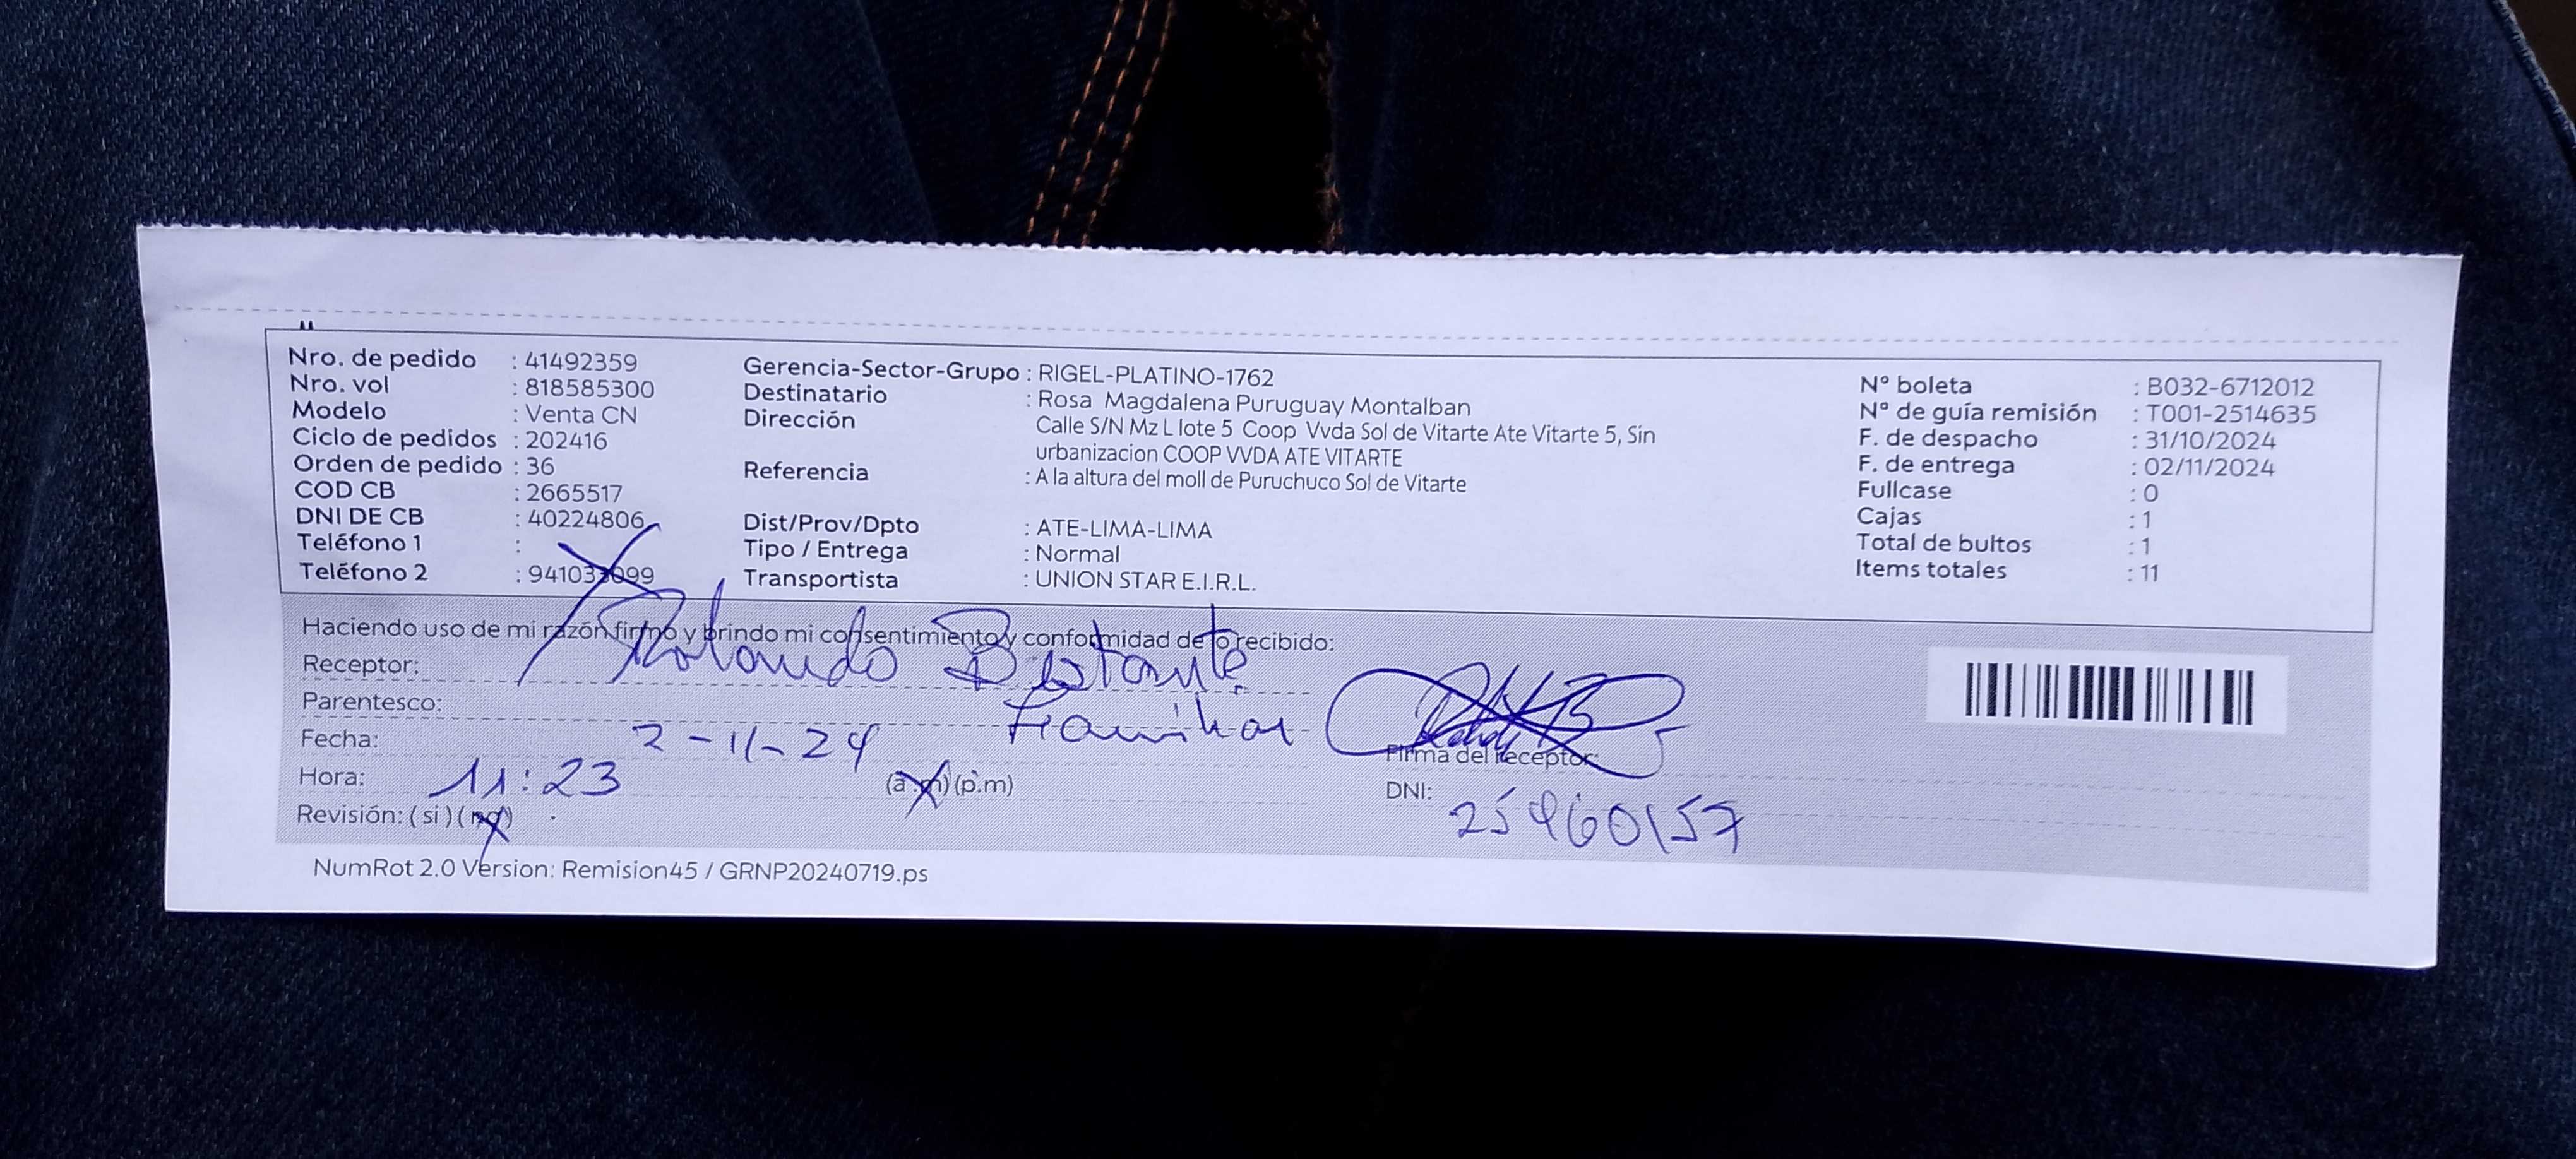 Nro. de pedido : 41492359
Nro. vol : 818585300
Modelo : Venta CN
Ciclo de pedidos : 202416
Orden de pedido : 36
COD CB : 2665517
DNI DE CB : 40224806
Teléfono 1 :
Teléfono 2 : 941033099
Gerencia-Sector-Grupo : RIGEL-PLATINO-1762
Destinatario : Rosa Magdalena Puruguay Montalban
Dirección Calle S/N Mz L lote 5 Coop Vvda Sol de Vitarte Ate Vitarte 5, Sin
urbanizacion COOP VVDA ATE VITARTE
Referencia : A la altura del moll de Puruchuco Sol de Vitarte
Dist/Prov/Dpto : ATE-LIMA-LIMA
Tipo / Entrega : Normal
Transportista : UNION STAR E.I.R.L.
Nº boleta : B032-6712012
Nº de guía remisión : T001-2514635
F. de despacho : 31/10/2024
F. de entrega : 02/11/2024
Fullcase : 0
Cajas : 1
Total de bultos : 1
Items totales : 11
Haciendo uso de mi razón firmo y brindo mi consentimiento y conformidad de lo recibido:
Receptor: Rolando
Parentesco: Familiar
Fecha: 2-11-24
Hora: 11:23 (a.m) (p.m)
Revisión: (si) (no)
Firma del receptor:
DNI: 25960157
NumRot 2.0 Version: Remision45 / GRNP20240719.ps